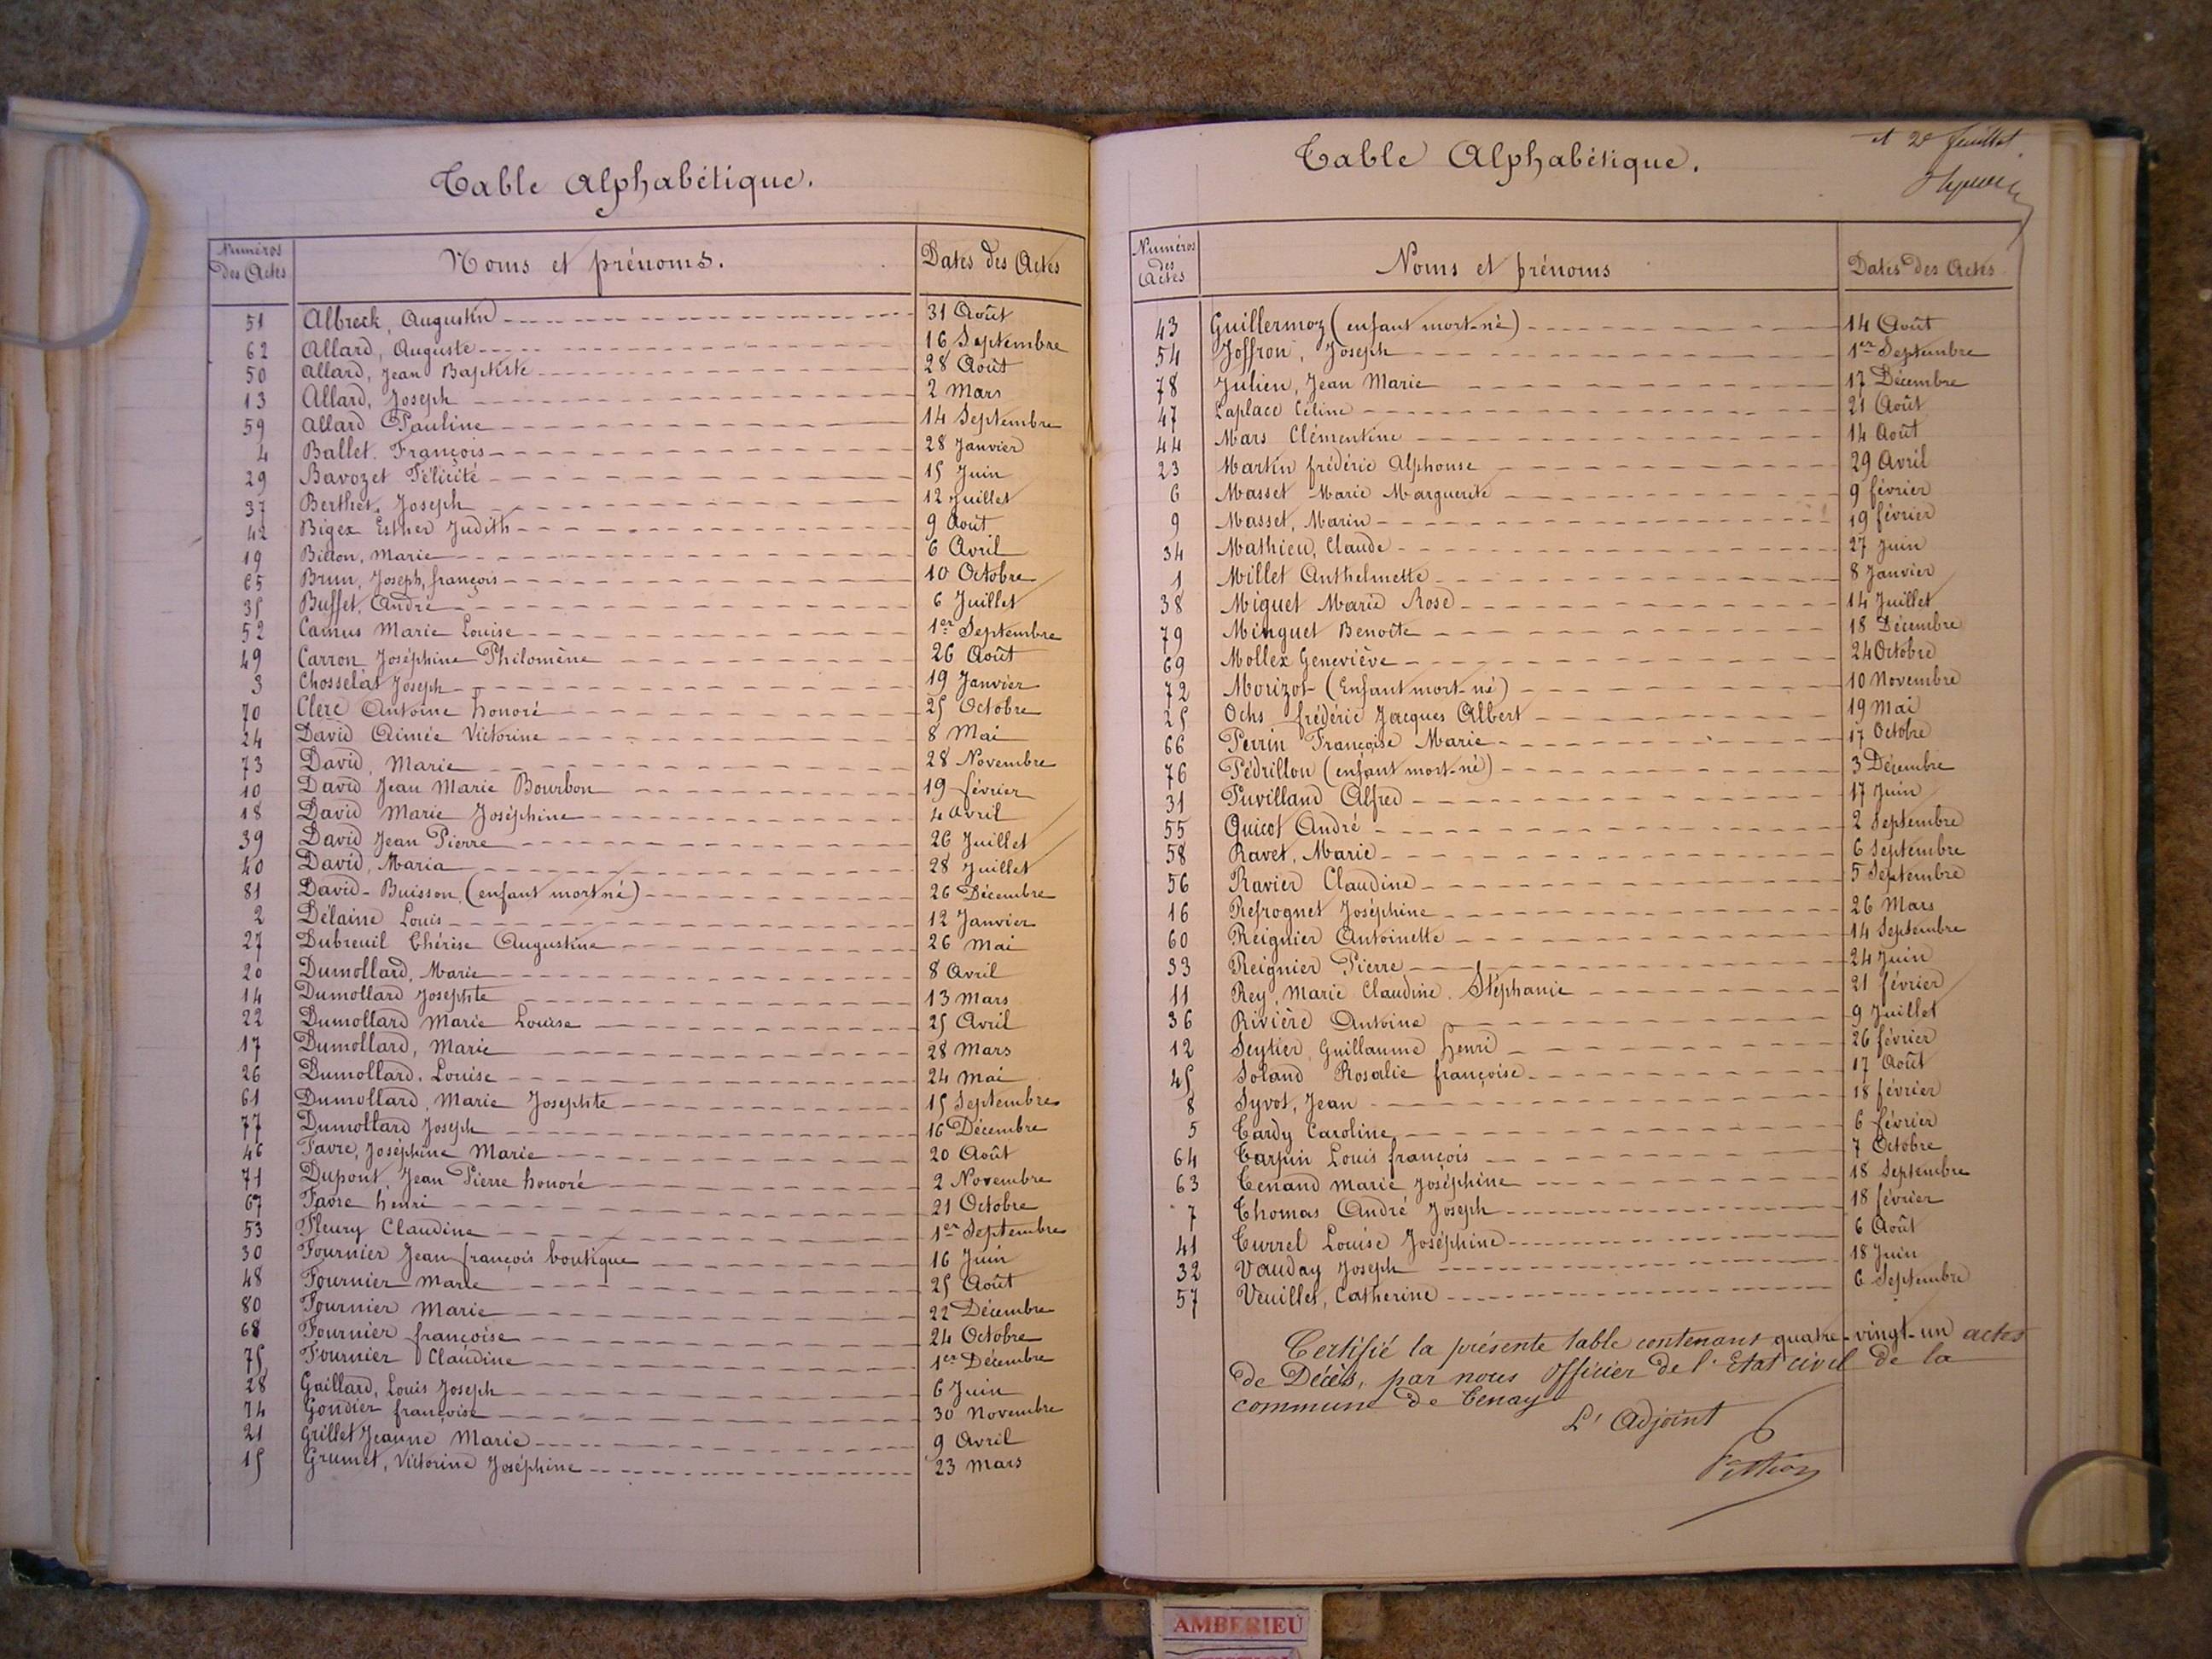 Table Alphabétique.
Numéros des Actes Noms et prénoms. Dates des Actes
51 Albreck, Augustin 31 Août
62 Allard, Auguste 16 Septembre
50 Allard, Jean Baptiste 28 Août
13 Allard, Joseph 2 Mars
59 Allard Pauline 14 Septembre
4 Ballet. François 28 Janvier
29 Bavozet Félicité 15 Juin
37 Berthet. Joseph 12 Juillet
42 Bigex Esther Judith 9 Août
19 Bidon, Marie 6 Avril
65 Brun, Joseph, françois 10 Octobre
35 Buffet. André 6 Juillet
52 Camus Marie Louise 1er Septembre
49 Carron Joséphine Philomène 26 Août
3 Chosselat Joseph 19 Janvier
70 Clerc Antoine honoré 25 Octobre
24 David Aimée Victorine 8 Mai
73 David, Marie 28 Novembre
10 David Jean Marie Bourbon 19 février
18 David Marie Joséphine 4 avril
39 David Jean Pierre 26 Juillet
40 David, Maria 28 Juillet
81 David-Buisson (enfant mort né) 26 Décembre
2 Délaine Louis 12 Janvier
27 Dubreuil Thérèse Augustine 26 Mai
20 Dumollard, Marie 8 Avril
14 Dumollard Josephte 13 Mars
22 Dumollard Marie Louise 25 Avril
17 Dumollard, Marie 28 Mars
26 Dumollard. Louise 24 Mai
61 Dumollard, Marie Josephte 15 Septembre
77 Dumollard Joseph 16 Décembre
46 Favre, Joséphine Marie 20 Août
71 Dupont, Jean Pierre honoré 2 Novembre
67 Favre henri 21 Octobre
53 Fleury Claudine 1er Septembre
30 Fournier Jean françois boutique 16 Juin
48 Fournier Marie 25 Août
80 Fournier Marie 22 Décembre
68 Fournier françoise 24 Octobre
75 Fournier Claudine 1er Décembre
28 Gaillard, Louis Joseph 6 Juin
74 Gondier françoise 30 Novembre
21 Grillet Jeanne Marie 9 Avril
15 Grumet, Victorine Joséphine 23 Mars
et 2e feuillet
Table Alphabétique.
Numéros des Actes Noms et prénoms Dates des Actes
43 Guillermoz (enfant mort-né) 14 Août
54 Joffron, Joseph 1er Septembre
78 Julien, Jean Marie 17 Décembre
47 Laplace Céline 21 Août
44 Mars Clémentine 14 Août
23 Martin frédéric Alphonse 29 Avril
6 Masset Marie Marguerite 9 février
9 Masset, Marin 19 février
34 Mathieu, Claude 27 Juin
1 Millet Anthelmette 8 Janvier
38 Miguet Marie Rose 14 Juillet
79 Minguet Benoîte 18 Décembre
69 Mollex Geneviève 24 Octobre
72 Morizot (Enfant mort-né) 10 Novembre
25 Ochs frédéric Jacques Albert 19 Mai
66 Perrin Françoise Marie 17 Octobre
76 Pédrillon (enfant mort-né) 3 Décembre
31 Puvilland Alfred 17 Juin
55 Quicot André 2 Septembre
58 Ravet, Marie 6 Septembre
56 Ravier Claudine 5 Septembre
16 Refrognet Joséphine 26 Mars
60 Reignier Antoinette 14 Septembre
33 Reignier Pierre 24 Juin
11 Rey, Marie Claudine. Stéphanie 21 février
36 Rivière Antoine 9 Juillet
12 Seytier, Guillaume henri 26 février
45 Soland Rosalie françoise 17 Août
8 Syvot, Jean 18 février
5 Tardy Caroline 6 février
64 Tarpin Louis françois 7 Octobre
63 Tenand Marie Joséphine 18 Septembre
7 Thomas André Joseph 18 février
41 Turrel Louise Joséphine 6 Août
32 Vauday Joseph 18 Juin
57 Veuillet, Catherine 6 Septembre
Certifié la présente table contenant quatre-vingt-un actes
de Décès, par nous Officier de l'Etat civil de la
commune de Tenay
L'Adjoint
AMBERIEU